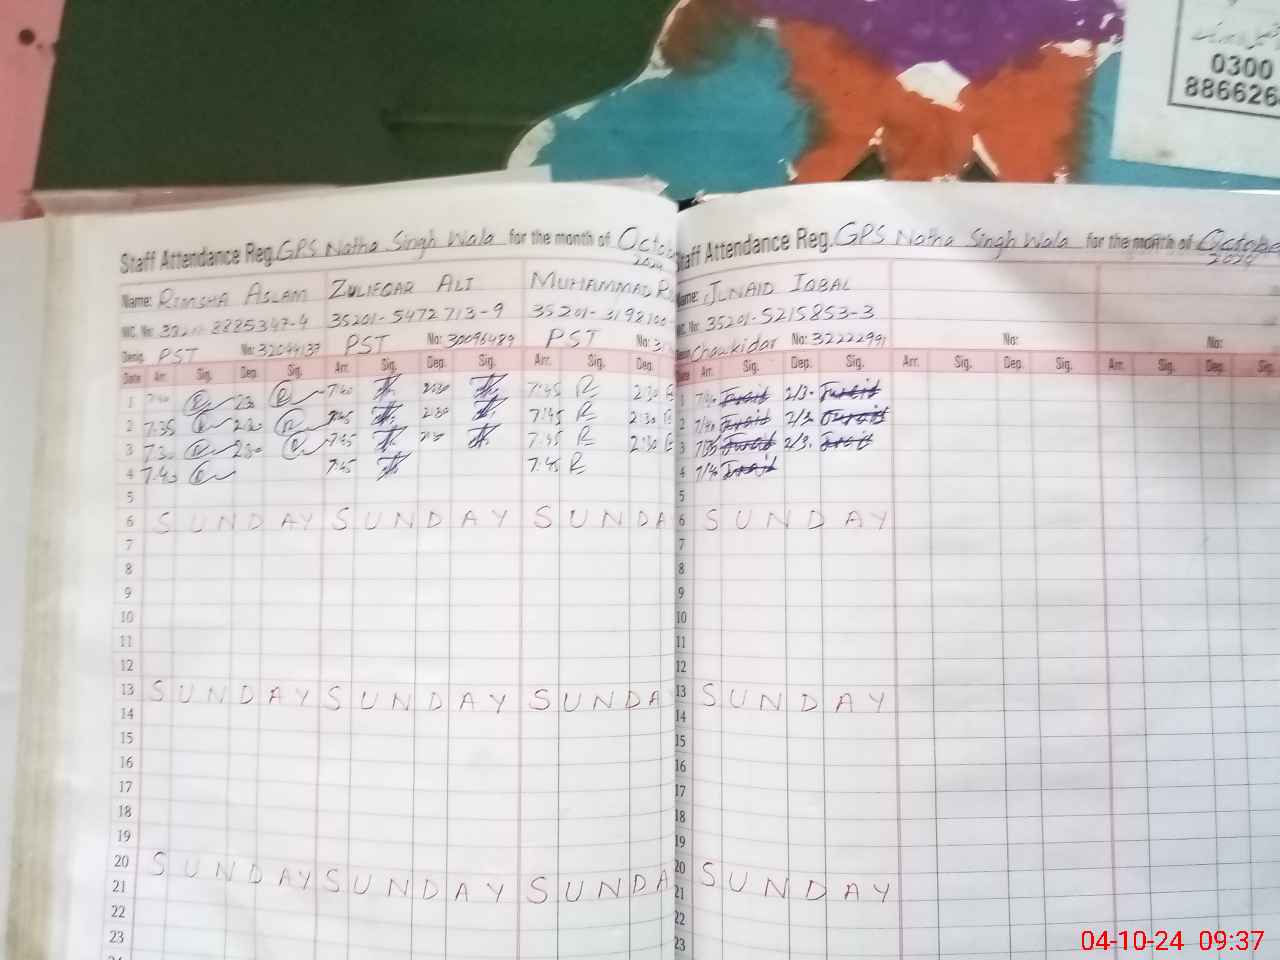 0300
886626
Staff Attendance Reg. GPS Natha Singh Wala for the month of Octo
2024
Name: RIMSHA ASLAM ZULIFQAR ALI MUHAMMAD R
35201-5472713-9 35201-3198100
Desig. PST No: 32044137 PST No: 30096489 PST No: 3
Date Arr. Sig. Dep. Sig. Arr. Sig. Dep. Sig. Arr. Sig. Dep.
1 7:40 7:40 2:30 7:45 R 2:30
2 7:35 7:45 2:30 7:45 R 2:30
3 7:30 2:30 7:45 7:45 R 2:30
4 7:40 7:45 7:45 R
5
6 SUNDAY SUNDAY SUNDA
7
8
9
10
11
12
13 SUNDAY SUNDAY SUNDA
14
15
16
17
18
19
20 SUNDAY SUNDAY SUNDA
21
22
23
taff Attendance Reg. GPS Natha Singh Wala for the month of Octobe
2024
ame: JUNAID IQBAL
NIC. No: 35201-5215853-3
Chawkidar No: 3222299 No: No:
Date Arr. Sig. Dep. Sig. Arr. Sig. Dep. Sig. Arr. Sig. Dep. Sig.
1 7/40 Junaid 2/3 Junaid
2 7/40 Junaid 2/3 Junaid
3 Junaid 2/3 Junaid
4 7/40 Junaid
5
6 SUNDAY
7
8
9
10
11
12
13 SUNDAY
14
15
16
17
18
19
20 SUNDAY
21
22
23
04-10-24 09:37